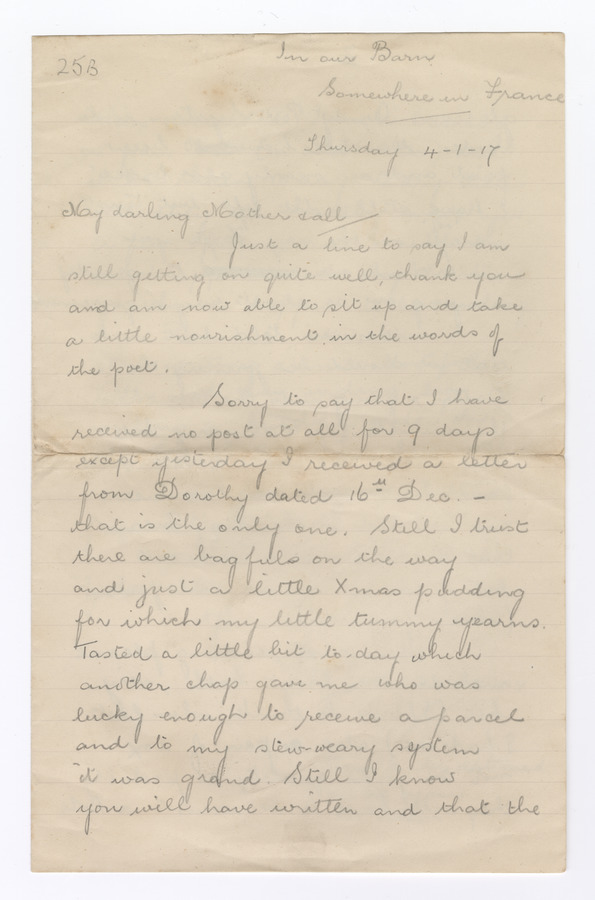 25B
In our Barn
Somewhere in France
Thursday 4-1-17
My darling Mother & all
Just a line to say I am
still getting on quite well, thank you
and am now able to sit up and take
a little nourishment, in the words of
the poet.
Sorry to say that I have
received no post at all for 9 days
except yesterday I received a letter
from Dorothy dated 16th Dec. -
that is the only one. Still I trust
there are bagfuls on the way
and just a little Xmas pudding
for which my little tummy yearns.
Tasted a little bit to-day which
another chap gave me who was
lucky enough to receive a parcel
and to my stew-weary system
it was grand. Still I know
you will have written and that the